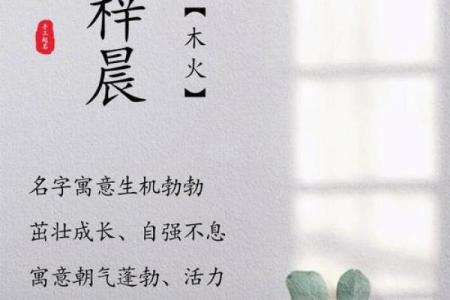 梓晨
【木火】
名字寓意生机勃勃
茁壮成长、自强不息
寓意朝气蓬勃、活力